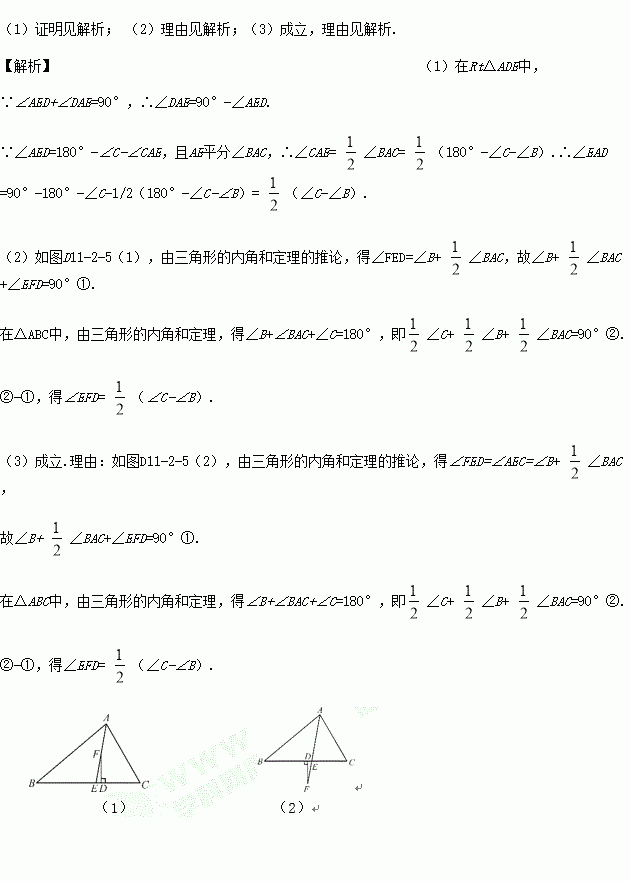 (1)证明见解析; (2)理由见解析;(3)成立,理由见解析.
【解析】 (1)在Rt△ADE中,
∵∠AED+∠DAE=90°,∴∠DAE=90°-∠AED.
∵∠AED=180°-∠C-∠CAE,且AE平分∠BAC,∴∠CAE= 1/2 ∠BAC= 1/2 (180°-∠C-∠B).∴∠EAD
=90°-180°-∠C-1/2(180°-∠C-∠B)= 1/2 (∠C-∠B).
(2)如图D11-2-5(1),由三角形的内角和定理的推论,得∠FED=∠B+ 1/2 ∠BAC,故∠B+ 1/2 ∠BAC
+∠EFD=90°①.
在△ABC中,由三角形的内角和定理,得∠B+∠BAC+∠C=180°,即1/2 ∠C+ 1/2 ∠B+ 1/2 ∠BAC=90°②.
②-①,得∠EFD= 1/2 (∠C-∠B).
(3)成立.理由:如图D11-2-5(2),由三角形的内角和定理的推论,得∠FED=∠AEC=∠B+ 1/2 ∠BAC
,
故∠B+ 1/2 ∠BAC+∠EFD=90°①.
在△ABC中,由三角形的内角和定理,得∠B+∠BAC+∠C=180°,即1/2 ∠C+ 1/2 ∠B+ 1/2 ∠BAC=90°②.
②-①,得∠EFD= 1/2 (∠C-∠B).
A
F
B E D C
(1)
A
B D E C
F
(2)
WWW